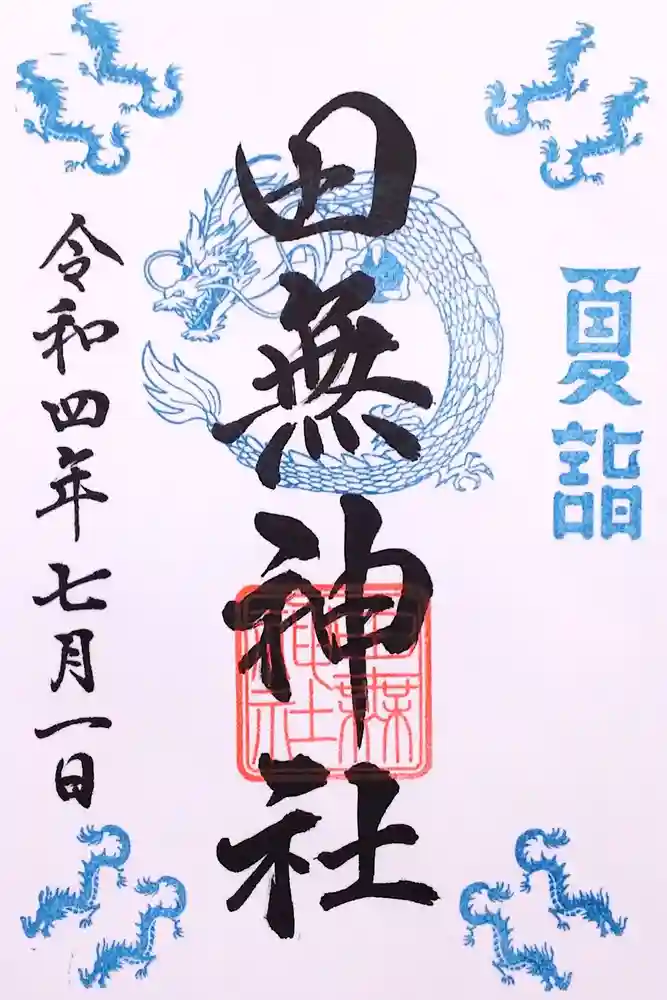 夏詣
田無神社
田無神社
令和四年七月一日